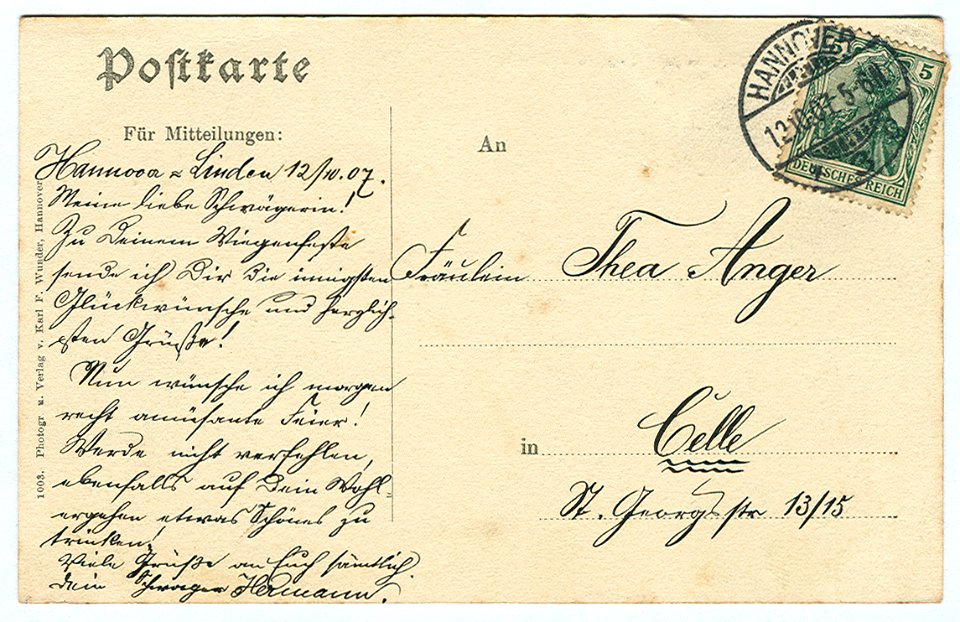 Postkarte
Für Mitteilungen:
Hannover-Linden 12/10.07.
Meine liebe Schwägerin!
Zu Deinem Wiegenfeste
sende ich Dir die innigsten
Glückwünsche und herzlich-
sten Grüße!
Nun wünsche ich morgen
recht amüsante Feier!
Werde nicht verfehlen,
ebenfalls auf Dein Wohl-
ergehen etwas Schönes zu
trinken!
Viele Grüße an Euch sämtlich
Dein Schwager Hermann.
1003. Photogr u. Verlag v. Karl F. Wunder, Hannover
An
Fräulein Thea Anger
in Celle
St. Georgstr 13/15
HANNOVER
12.10.07. 5-6N
5
DEUTSCHES REICH